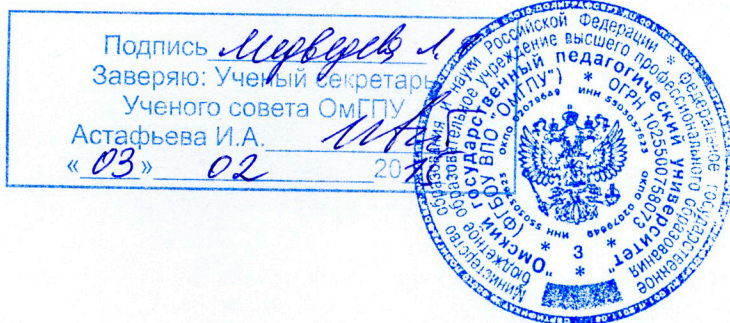 Подпись Медведева Л.
Заверяю: Ученый секретарь
Ученого совета ОмГПУ
Астафьева И.А.
« 03 » 02 20
Министерство образования и науки Российской Федерации * Федеральное государственное
бюджетное образовательное учреждение высшего профессионального образования
"Омский государственный педагогический университет"
(ФГБОУ ВПО "ОмГПУ") * ОГРН 1025500758073
ИНН 5503037623 ОКПО 02079649
* 3 *